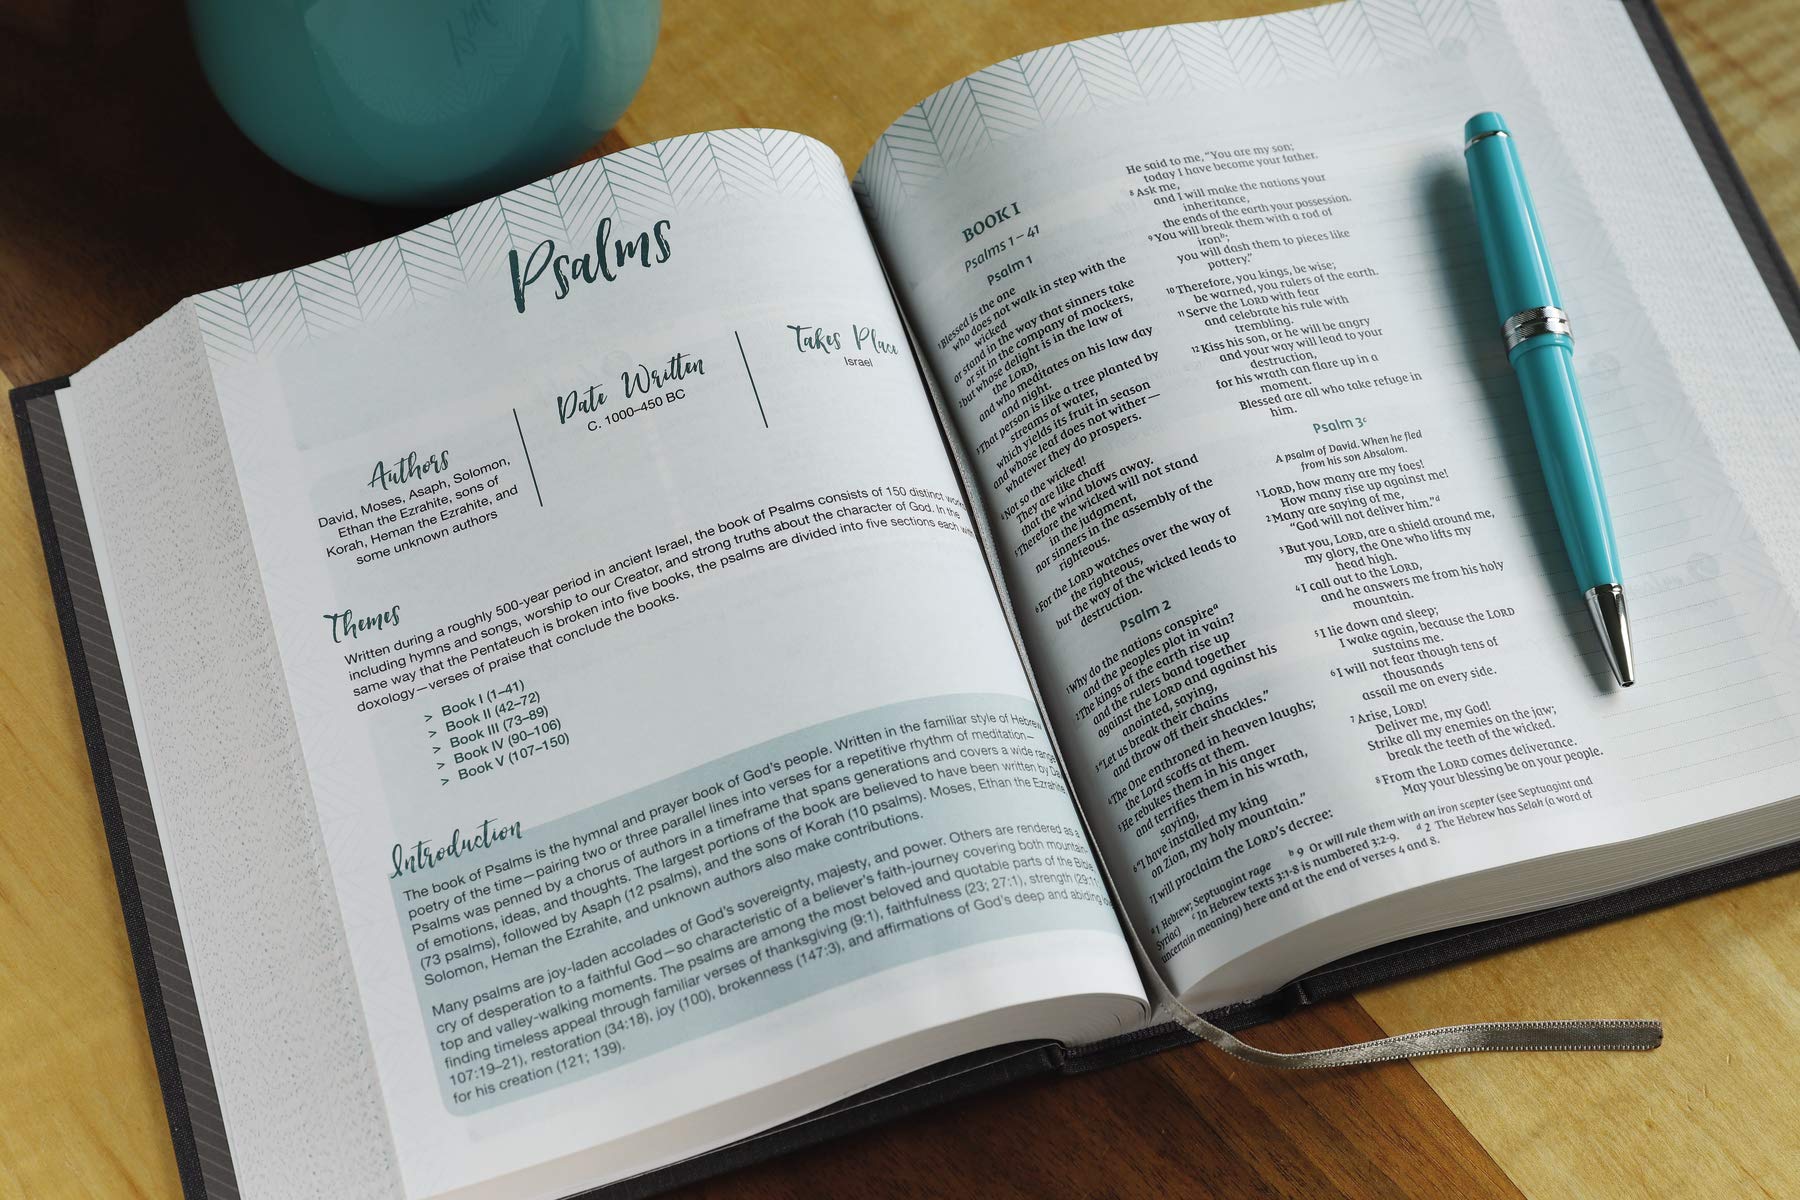 Psalms
Authors
David, Moses, Asaph, Solomon,
Ethan the Ezrahite, sons of
Korah, Heman the Ezrahite, and
some unknown authors
Date Written
C. 1000–450 BC
Takes Place
Israel
Themes
Written during a roughly 500-year period in ancient Israel, the book of Psalms consists of 150 distinct works
including hymns and songs, worship to our Creator, and strong truths about the character of God. In the
same way that the Pentateuch is broken into five books, the psalms are divided into five sections each with
doxology—verses of praise that conclude the books.
> Book I (1–41)
> Book II (42–72)
> Book III (73–89)
> Book IV (90–106)
> Book V (107–150)
Introduction
The book of Psalms is the hymnal and prayer book of God's people. Written in the familiar style of Hebrew
poetry of the time—pairing two or three parallel lines into verses for a repetitive rhythm of meditation—
Psalms was penned by a chorus of authors in a timeframe that spans generations and covers a wide range
of emotions, ideas, and thoughts. The largest portions of the book are believed to have been written by
(73 psalms), followed by Asaph (12 psalms), and the sons of Korah (10 psalms). Moses, Ethan the Ezrahite
Solomon, Heman the Ezrahite, and unknown authors also make contributions.
Many psalms are joy-laden accolades of God's sovereignty, majesty, and power. Others are rendered as a
cry of desperation to a faithful God—so characteristic of a believer's faith-journey covering both mountain-
top and valley-walking moments. The psalms are among the most beloved and quotable parts of the Bible,
finding timeless appeal through familiar verses of thanksgiving (9:1), faithfulness (23; 27:1), strength (29:11
107:19–21), restoration (34:18), joy (100), brokenness (147:3), and affirmations of God's deep and abiding
for his creation (121; 139).
BOOK I
Psalms 1–41
Psalm 1
1 Blessed is the one
who does not walk in step with the
wicked
or stand in the way that sinners take
or sit in the company of mockers,
2 but whose delight is in the law of
the LORD,
and who meditates on his law day
and night.
3 That person is like a tree planted by
streams of water,
which yields its fruit in season
and whose leaf does not wither—
whatever they do prospers.
4 Not so the wicked!
They are like chaff
that the wind blows away.
5 Therefore the wicked will not stand
in the judgment,
nor sinners in the assembly of the
righteous.
6 For the LORD watches over the way of
the righteous,
but the way of the wicked leads to
destruction.
Psalm 2
1 Why do the nations conspire a
and the peoples plot in vain?
2 The kings of the earth rise up
and the rulers band together
against the LORD and against his
anointed, saying,
3 "Let us break their chains
and throw off their shackles."
4 The One enthroned in heaven laughs;
the Lord scoffs at them.
5 He rebukes them in his anger
and terrifies them in his wrath,
saying,
6 "I have installed my king
on Zion, my holy mountain."
7 I will proclaim the LORD's decree:
He said to me, "You are my son;
today I have become your father.
8 Ask me,
and I will make the nations your
inheritance,
the ends of the earth your possession.
9 You will break them with a rod of
iron b;
you will dash them to pieces like
pottery."
10 Therefore, you kings, be wise;
be warned, you rulers of the earth.
11 Serve the LORD with fear
and celebrate his rule with
trembling.
12 Kiss his son, or he will be angry
and your way will lead to your
destruction,
for his wrath can flare up in a
moment.
Blessed are all who take refuge in
him.
Psalm 3 c
A psalm of David. When he fled
from his son Absalom.
1 LORD, how many are my foes!
How many rise up against me!
2 Many are saying of me,
"God will not deliver him." d
3 But you, LORD, are a shield around me,
my glory, the One who lifts my
head high.
4 I call out to the LORD,
and he answers me from his holy
mountain.
5 I lie down and sleep;
I wake again, because the LORD
sustains me.
6 I will not fear though tens of
thousands
assail me on every side.
7 Arise, LORD!
Deliver me, my God!
Strike all my enemies on the jaw;
break the teeth of the wicked.
8 From the LORD comes deliverance.
May your blessing be on your people.
a 1 Hebrew; Septuagint rage b 9 Or will rule them with an iron scepter (see Septuagint and
Syriac) c In Hebrew texts 3:1-8 is numbered 3:2-9. d 2 The Hebrew has Selah (a word of
uncertain meaning) here and at the end of verses 4 and 8.